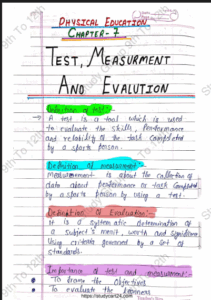 PHYSICAL EDUCATION
CHAPTER - 7
TEST, MEASURMENT
AND EVALUTION
Definition of test:-
→ A test is a tool which is used
to evaluate the skills, Performance
and reliability of the task Completed
by a sports person.
Definition of measurement:-
Measurement is about the collection of
data about performance or task Completed
by a sports person by using a test.
Definition of Evaluation:-
It is a systematic determination of
a subject's merit, worth and significance
Using criteria governed by a set of
standards.
Importance of test and measurement:-
To frame the Objectives
To evaluate the learners
https://studycare12th.com